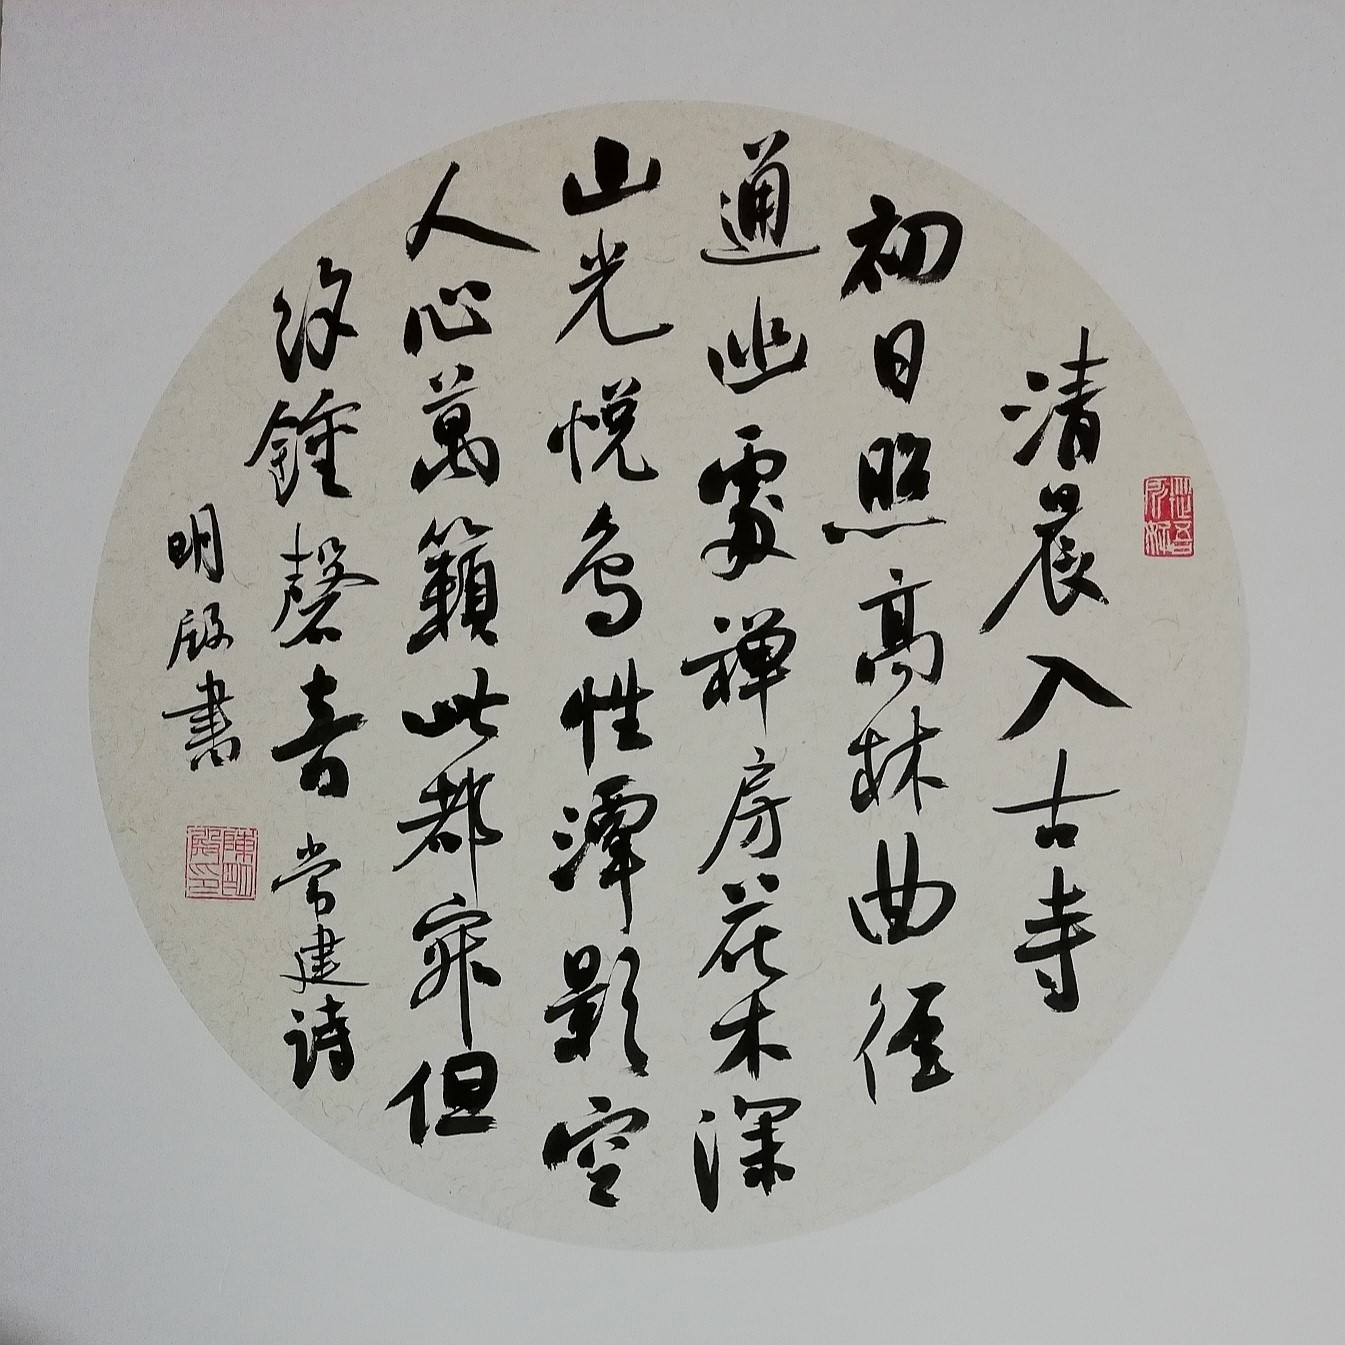 清晨入古寺
初日照高林曲径
通幽處禪房花木深
山光悦鸟性潭影空
人心萬籟此都寂但
餘鐘磬音 常建诗
明殷書
陳明殷印